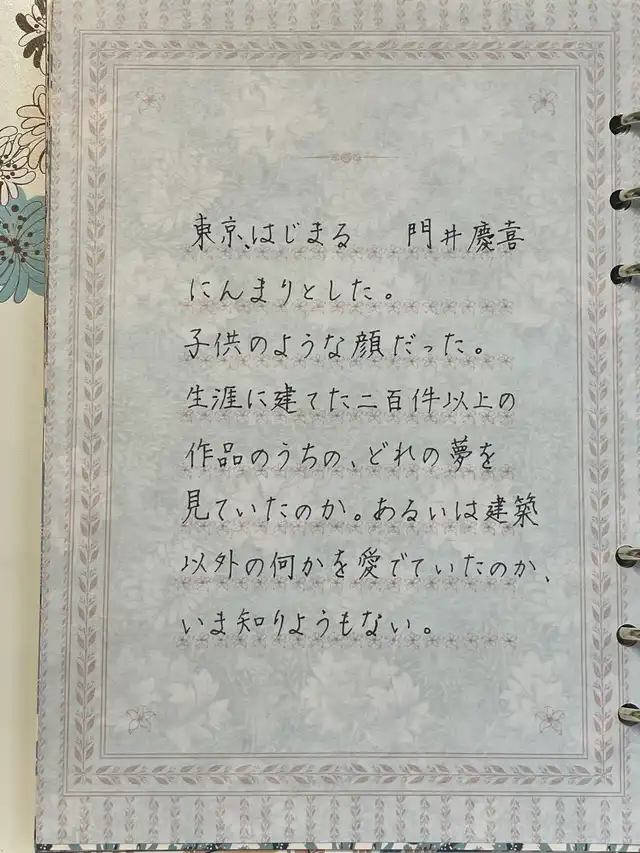 東京、はじまる　　門井慶喜
にんまりとした。
子供のような顔だった。
生涯に建てた二百件以上の
作品のうちの、どれの夢を
見ていたのか。あるいは建築
以外の何かを愛でていたのか、
いま知りようもない。